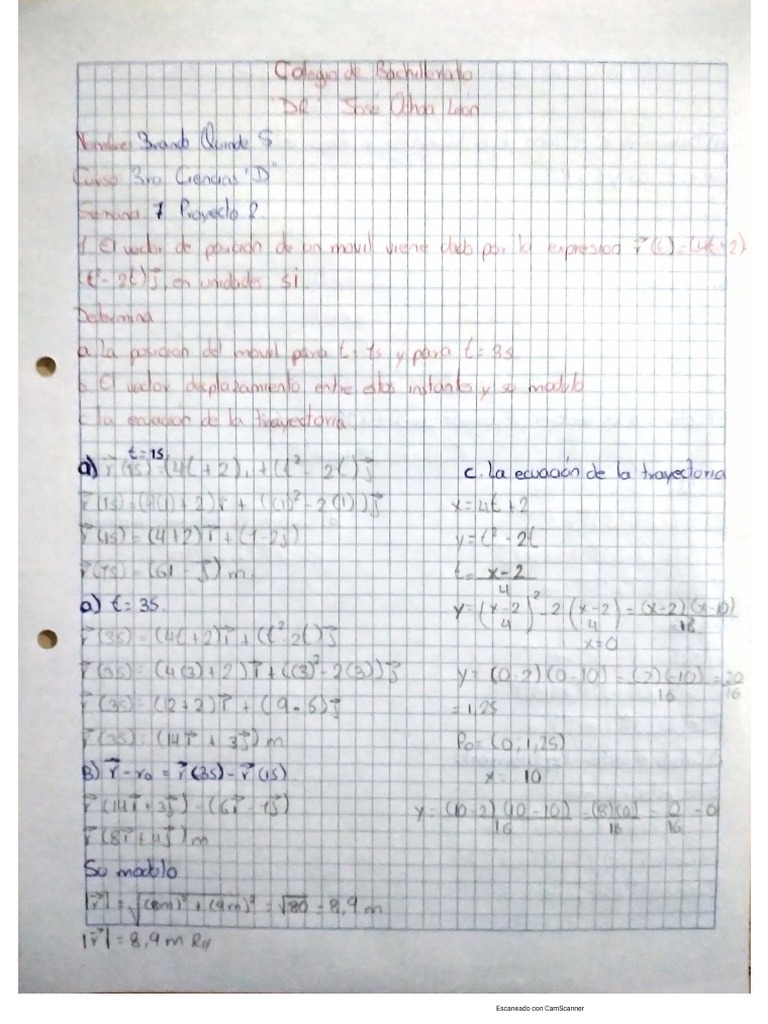 Colegio de Bachillerato
"DR José Ochoa León
Nombre Brando Quinde S
Curso 3ro Ciencias "D"
Semana 7 Proyecto 2
1. El vector de posición de un movil viene dado por la expresion r⃗(t)=(4t+2)
(t²-2t)j⃗, en unidades si
Determina
a. la posicion del movil para t=1s y para t=3s
b. El vector displazamiento entre estos instantes y su modulo
c. la ecuación de la trayectoria
t=1s
a) r⃗(1s)=(4t+2)i+(t²-2t)j⃗
r⃗(1s)=(4(1)+2)i⃗+((1)²-2(1))j⃗
r⃗(1s)=(4+2)i⃗+(1-2j)
r⃗(1s)=(6i-j⃗)m.
a) t=3s.
r⃗(3s)=(4t+2)i⃗+(t²2t)j⃗
r⃗(3s)=(4(3)+2)i⃗+((3)²-2(3))j⃗
r⃗(3s)=(12+2)i⃗+(9-6)j⃗
r⃗(3s)=(14i⃗+3j⃗)m
B) r⃗-r₀=r⃗(3s)-r⃗(1s)
r⃗(14i⃗+3j⃗)-(6i⃗-1j⃗)
r⃗(8i⃗+4j⃗)m
Su modulo
|r⃗|=√(8m)²+(4m)²=√80=8,9m
|r⃗|=8,9m R//
c. La ecuación de la trayectoria
x=4t+2
y=t²-2t
t=x-2/4
y=(x-2/4)²-2(x-2/4)=(x-2)(x-10)/16
x=0
y=(0-2)(0-10)=(2)(-10)/16=20/16
=1,25
P₀=(0;1,25)
x= 10
y=(10-2)(10-10)/16=(8)(0)/16=0/16=0
Escaneado con CamScanner